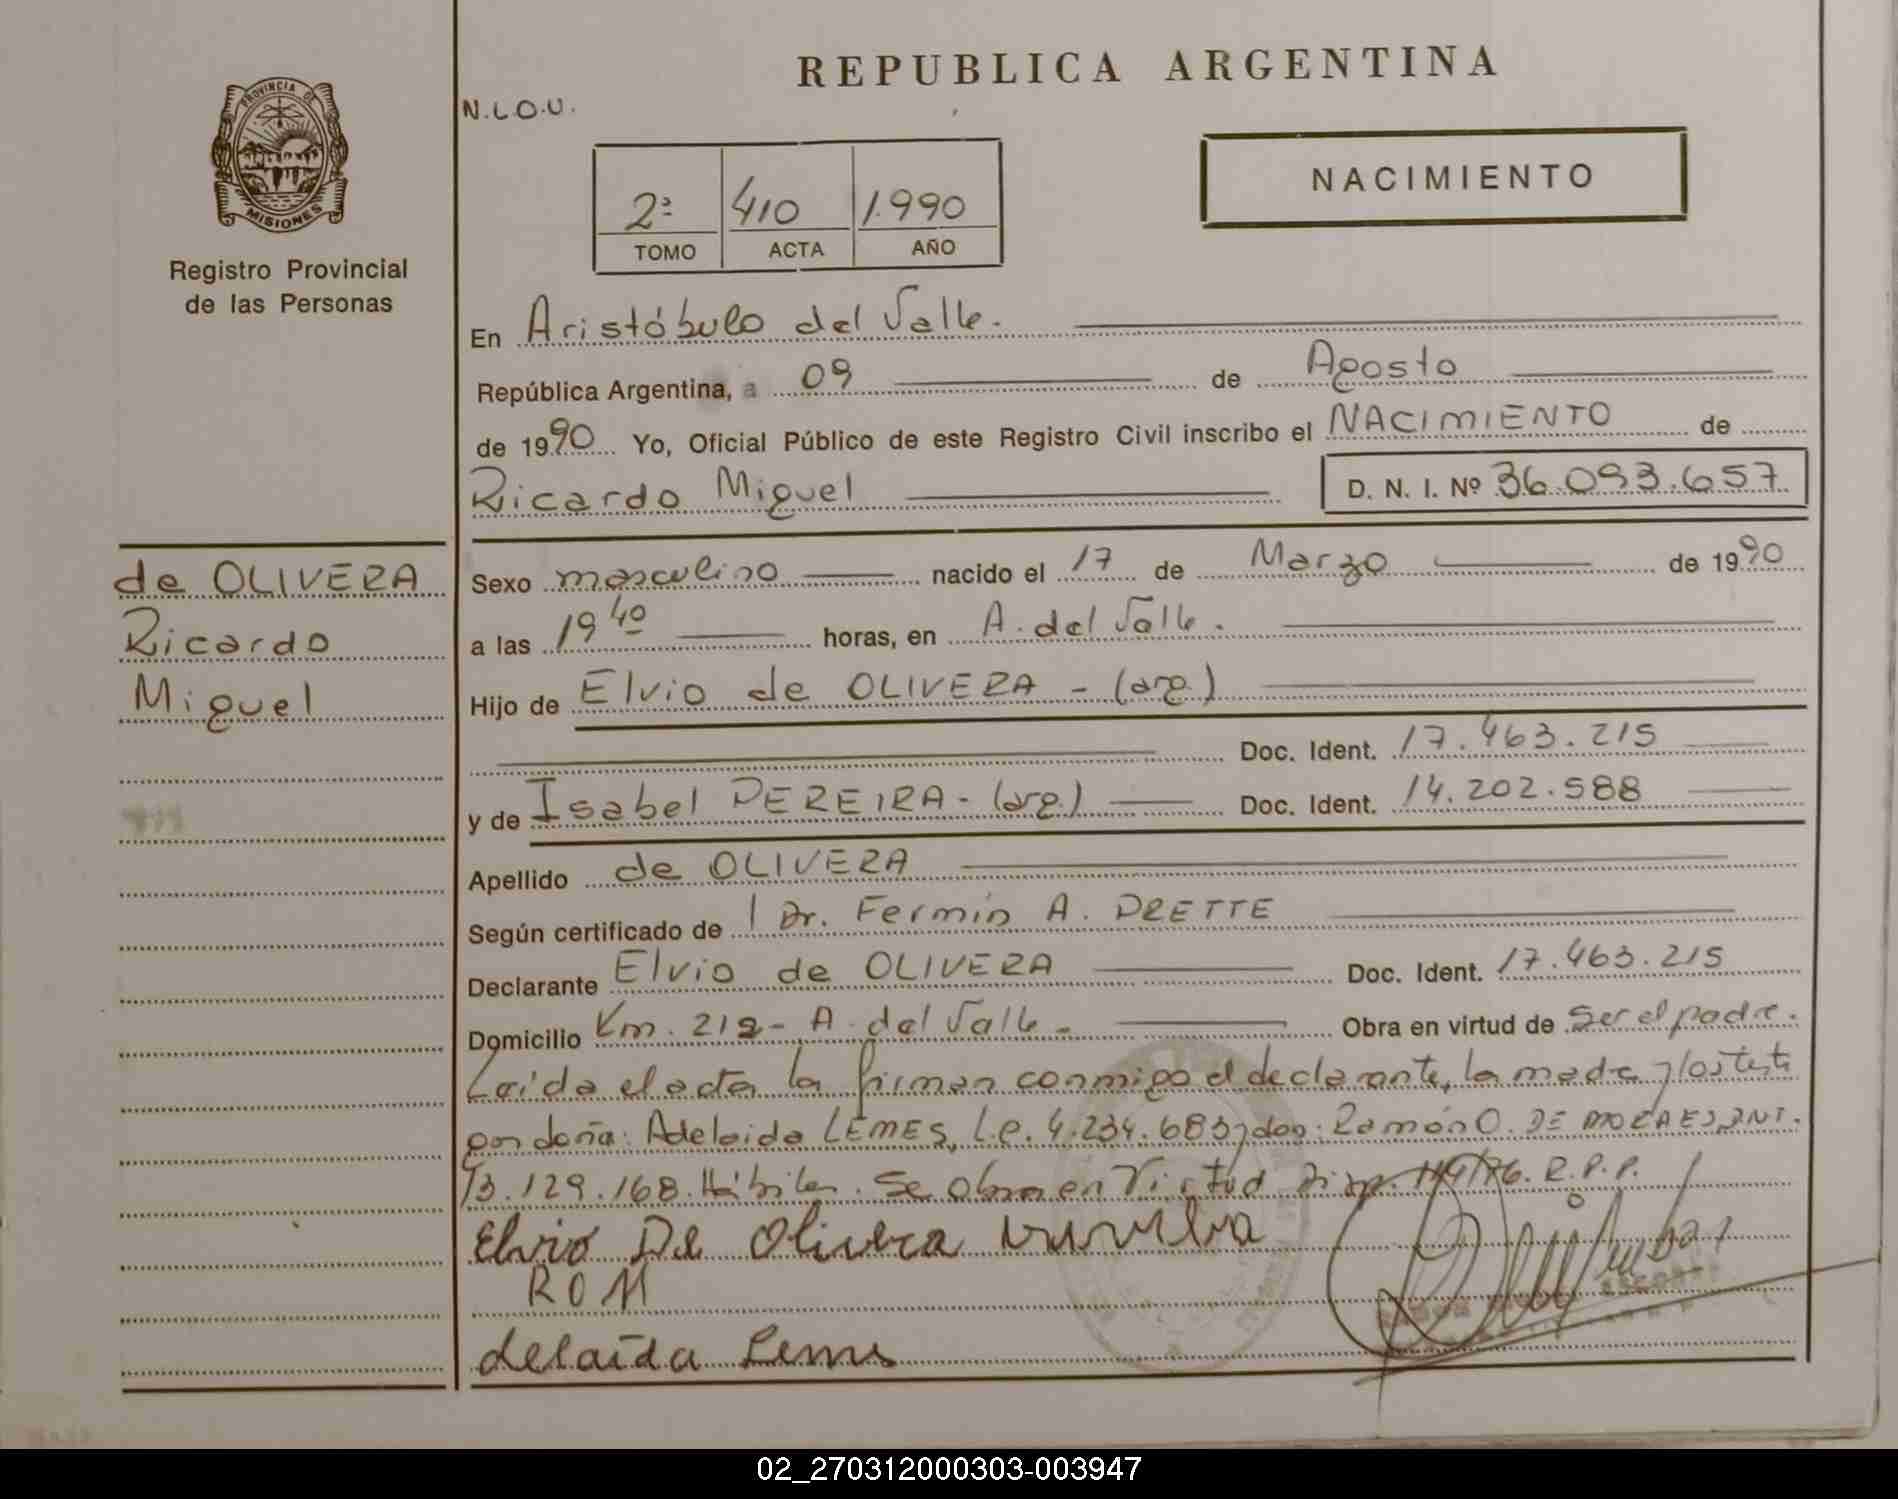 REPUBLICA ARGENTINA
N.L.O.U.
PROVINCIA DE
MISIONES
Registro Provincial
de las Personas
2ª 410 1.990
TOMO ACTA AÑO
NACIMIENTO
En Aristóbulo del Valle.
República Argentina, a 09 de Agosto
de 1990 Yo, Oficial Público de este Registro Civil inscribo el NACIMIENTO de
Ricardo Miguel D. N. I. Nº 36.093.657
de OLIVERA
Ricardo
Miguel
Sexo masculino nacido el 17 de Marzo de 1990
a las 19 40 horas, en A. del Valle.
Hijo de Elvio de OLIVERA - (arg.)
Doc. Ident. 17.463.215
y de Isabel PEREIRA - (arg.) Doc. Ident. 14.202.588
Apellido de OLIVERA
Según certificado de Dr. Fermín A. PRETTE
Declarante Elvio de OLIVERA Doc. Ident. 17.463.215
Domicilio Km. 212 - A. del Valle - Obra en virtud de Ser el padre.
Leída el acta la firman conmigo el declarante, la madre y los test.
por doña: Adelaida LEMES, L.C. 4.234.683 y don: Ramón O. DE MORAES, DNI.
13.129.168. Hábiles. Se obra en Virtud Disp. 114/76. R.P.P.
Elvio De Olivera
ROM
delaida Lemes
02_270312000303-003947